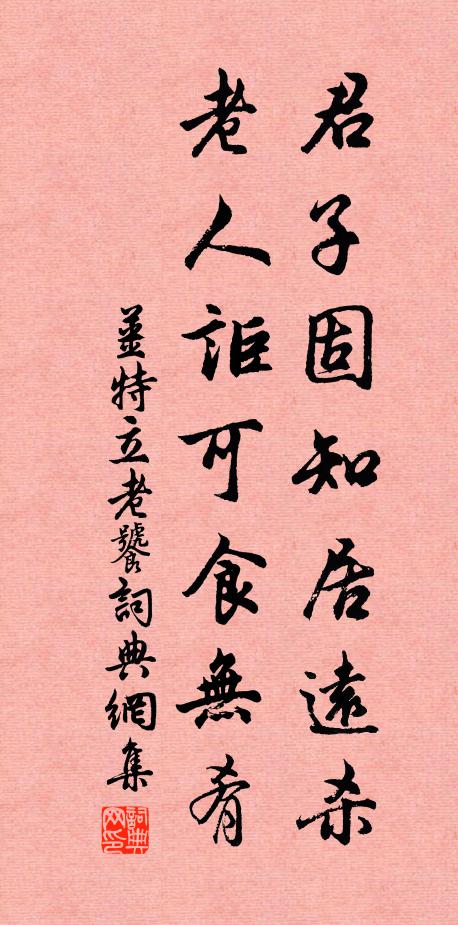 君子固知居遠杀
老人詎可食無肴
姜特立老饕詞典網集
詞典网印